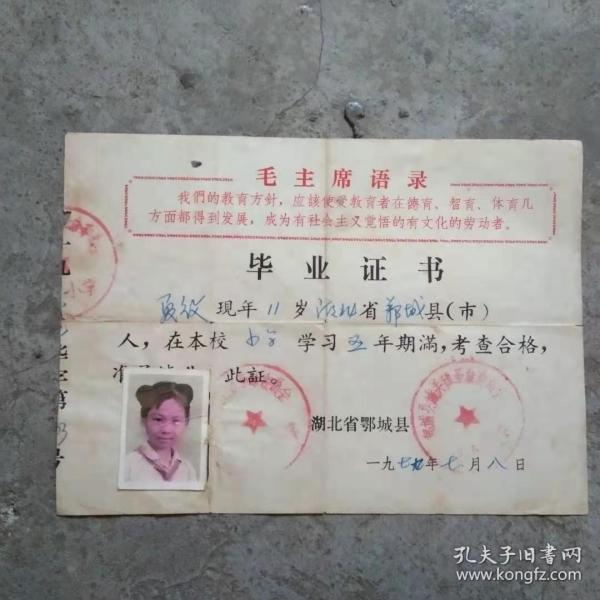 毛主席语录
我們的教育方針，应該使受教育者在德育、智育、体育几
方面都得到发展，成为有社会主义覚悟的有文化的劳动者。
毕业证书
现年11岁湖北省鄂城县(市)
人，在本校小学学习五年期滿，考查合格，
准 此証。
湖北省鄂城县
一九七九年七月八日
第
号
孔夫子旧书网
www.kongfz.com